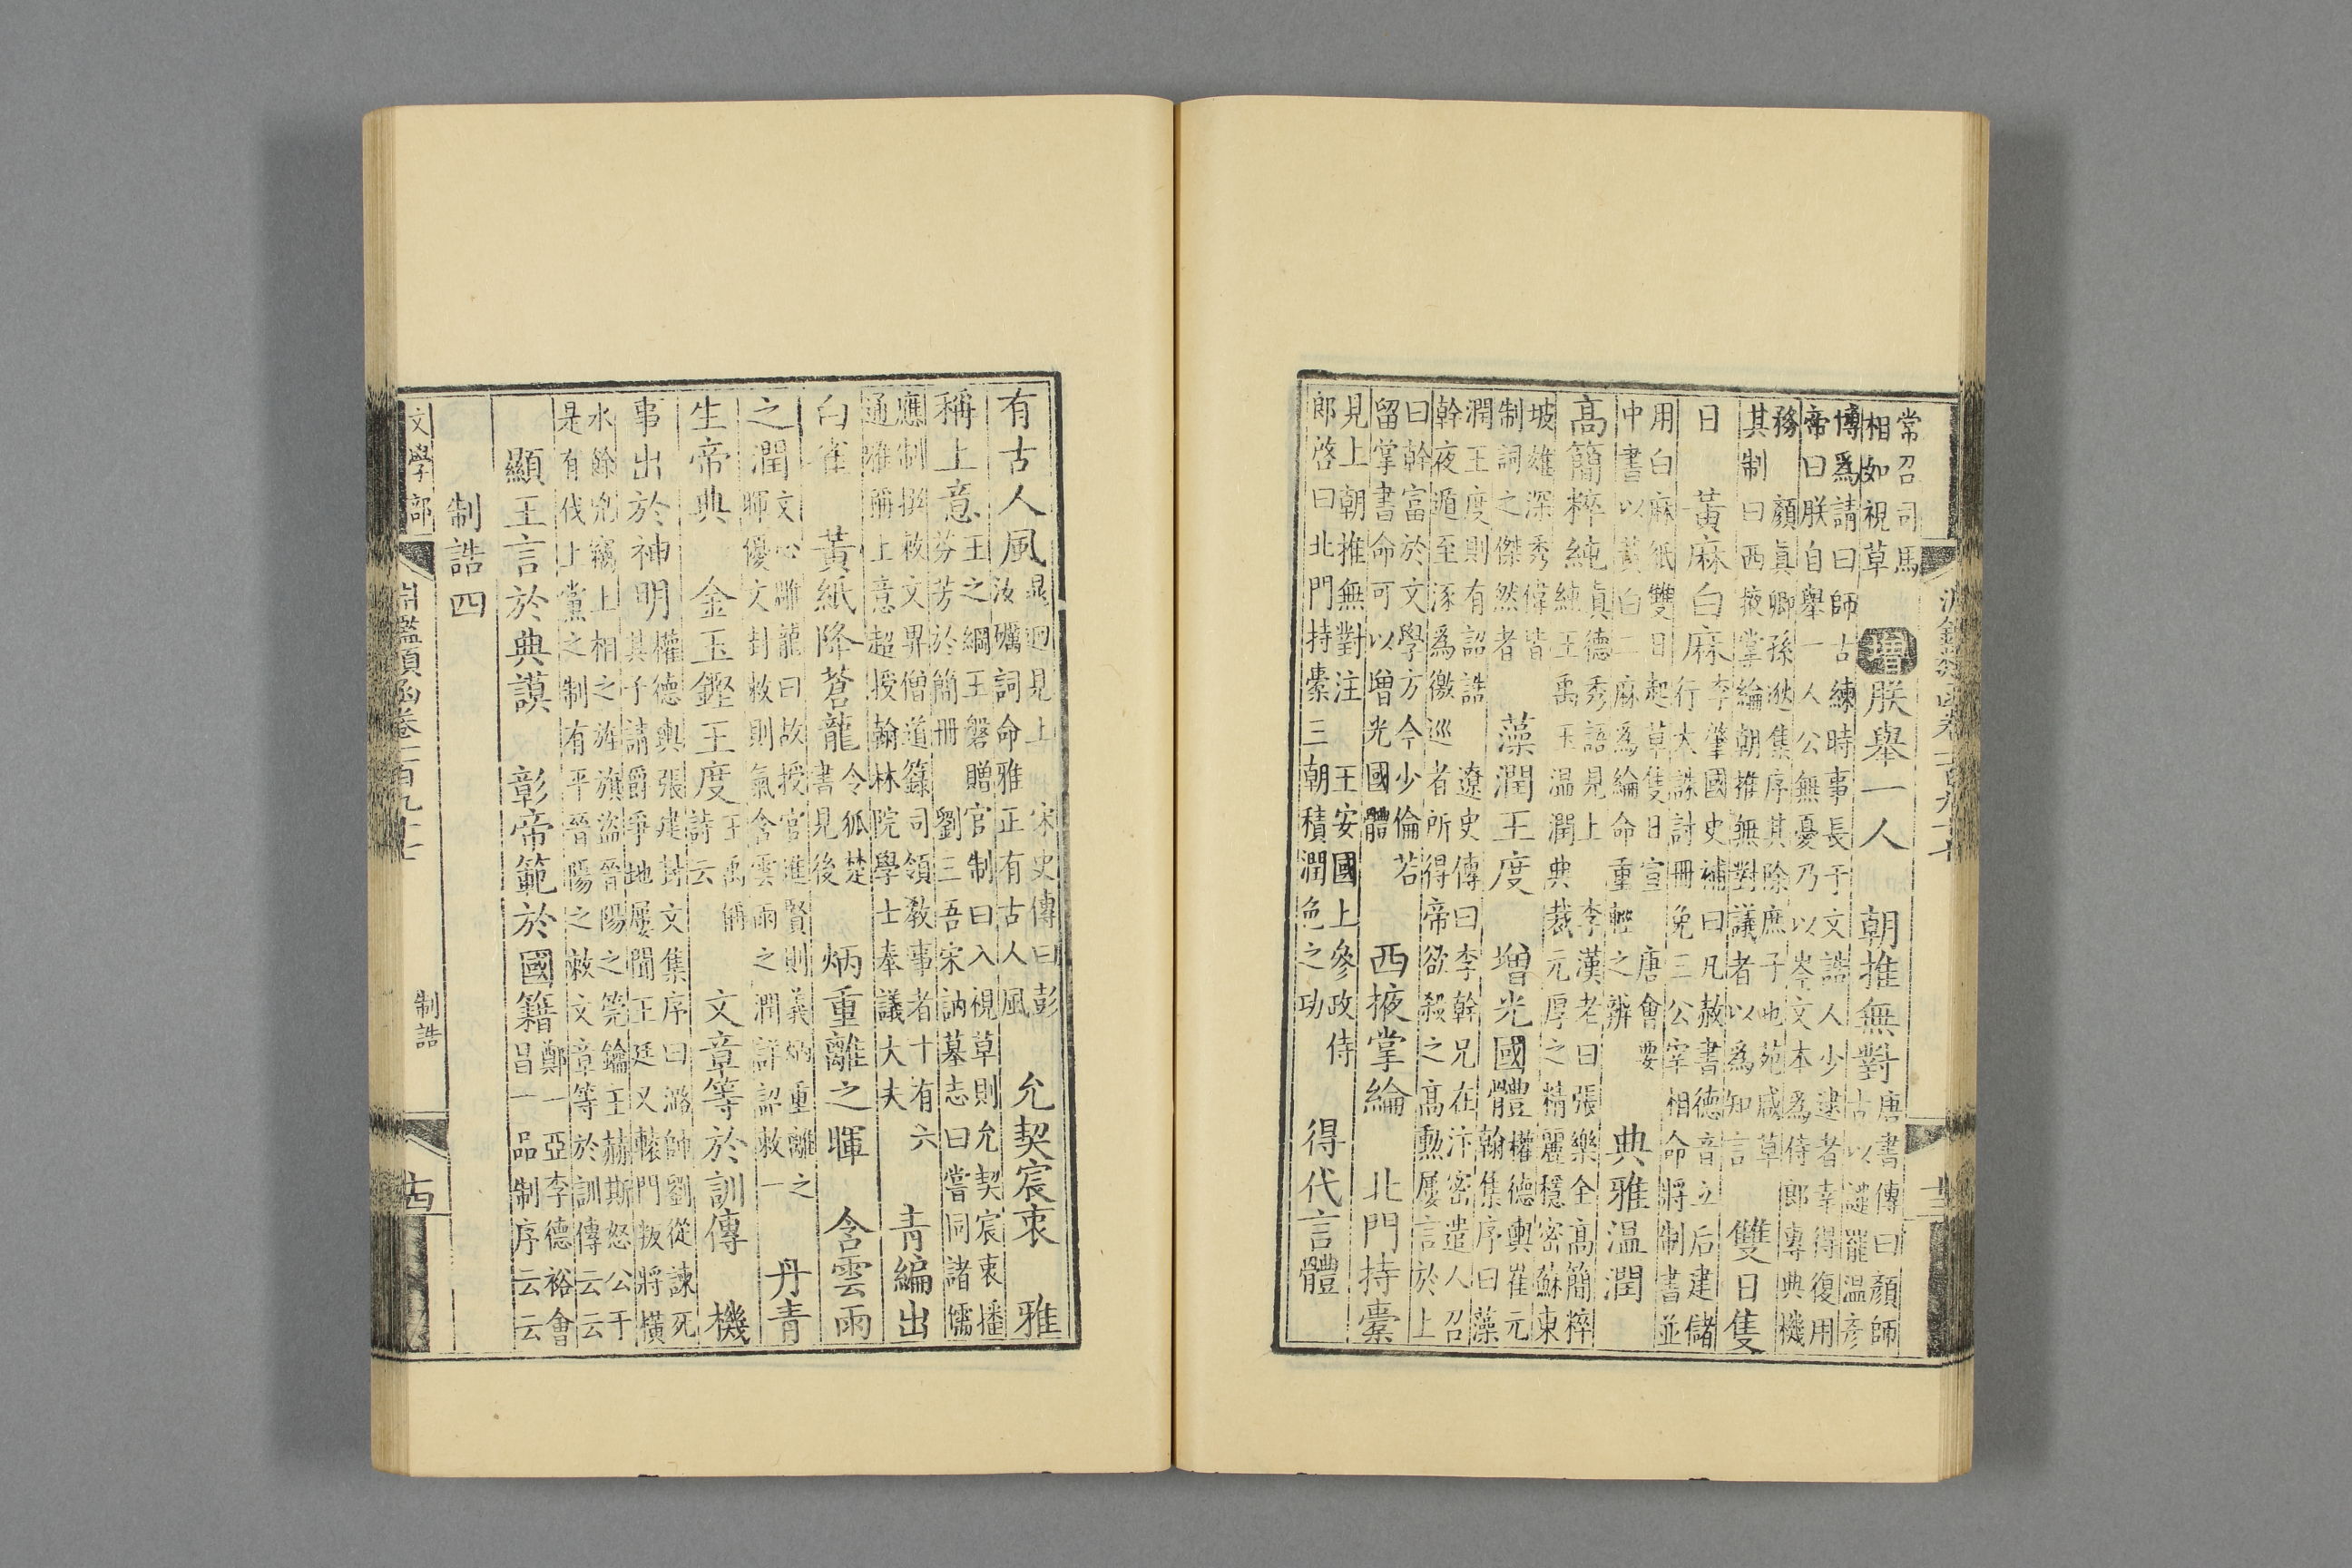 淵鑑類函卷一百九十七
常召司馬
相如視草
增朕舉一人　朝推無對
唐書傳曰顏師
古以譴罷溫彥
博爲請曰師古練時事長于文誥人少逮者幸得復用
帝曰朕自舉一人公無憂乃以岑文本爲侍郎專典機
務　顏真卿孫逖集序其除庶子也苑咸草
其制曰西掖掌綸朝推無對議者以爲知言
雙日隻
日　黃麻白麻
李肇國史補曰凡赦書德音立后建儲
行大誅討冊免三公宰相命將制書並
用白麻紙雙日起草隻日宣　唐會要
中書以黃白二麻爲綸命重輕之辨
典雅溫潤
高簡粹純
真德秀語見上　李漢老曰張樂全高簡粹
純王禹玉溫潤典裁元厚之精麗穩密蘇東
坡雄深秀偉皆
制詞之傑然者
藻潤王度　增光國體
權德輿崔元
翰集序曰藻
潤王度則有詔誥　遼史傳曰李幹兄在汴密遣人召
幹夜遁至涿爲徼巡者所得帝欲殺之高勲屢言於上
曰幹富於文學方今少倫若
留掌書命可以增光國體
西掖掌綸　北門持橐
見上朝推無對注　王安國上參政侍
郎啓曰北門持橐三朝積潤色之功
得代言體
有古人風
晁迥見上　宋史傳曰彭
汝礪詞命雅正有古人風
允契宸衷　雅
稱上意
王之綱王磐贈官制曰入視草則允契宸衷播
芬芳於簡冊　劉三吾宋訥墓志曰嘗同諸儒
應制撰敕文畀僧道籙司領教事者十有六
通雅稱上意超授翰林院學士奉議大夫
青編出
白雀　黃紙降蒼龍
令狐楚
書見後
炳重離之暉　含雲雨
之潤
文心雕龍曰故授官進賢則義炳重離之
暉優文封敕則氣含雲雨之潤詳詔敕一
丹青
生帝典　金玉鏗王度
王禹偁
詩云
文章等於訓傳　機
事出於神明
權德輿張建封文集序曰潞帥劉從諫死
其子請爵爭地屢聞王廷又轅門叛將橫
水餘兇竊上相之旌旗盜晉陽之筦鑰主赫斯怒公于
是有伐上黨之制有平晉陽之敕文章等於訓傳云云
顯王言於典謨　彰帝範於國籍
鄭亞李德裕會
昌一品制序云云
制誥四
文學部　淵鑑類函卷一百九十七　制誥　十四